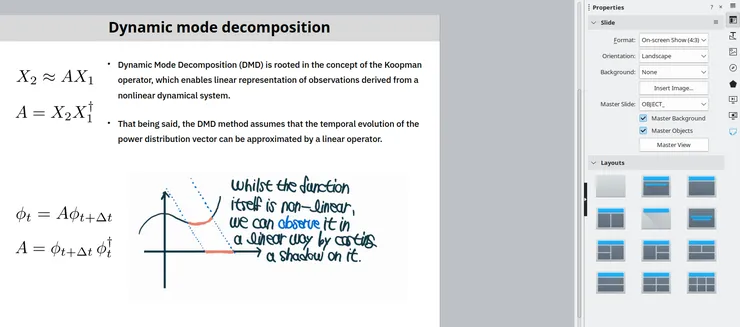 Dynamic mode decomposition
X₂ ≈ AX₁
A = X₂X₁†
• Dynamic Mode Decomposition (DMD) is rooted in the concept of the Koopman
operator, which enables linear representation of observations derived from a
nonlinear dynamical system.
• That being said, the DMD method assumes that the temporal evolution of the
power distribution vector can be approximated by a linear operator.
ϕₜ = Aϕₜ₊Δₜ
A = ϕₜ₊Δₜ ϕₜ†
whilst the function
itself is non-linear,
we can observe it in
a linear way by casting
a shadow on it.
Properties
Slide
Format: On-screen Show (4:3)
Orientation: Landscape
Background: None
Insert Image...
Master Slide: OBJECT_
Master Background
Master Objects
Master View
Layouts